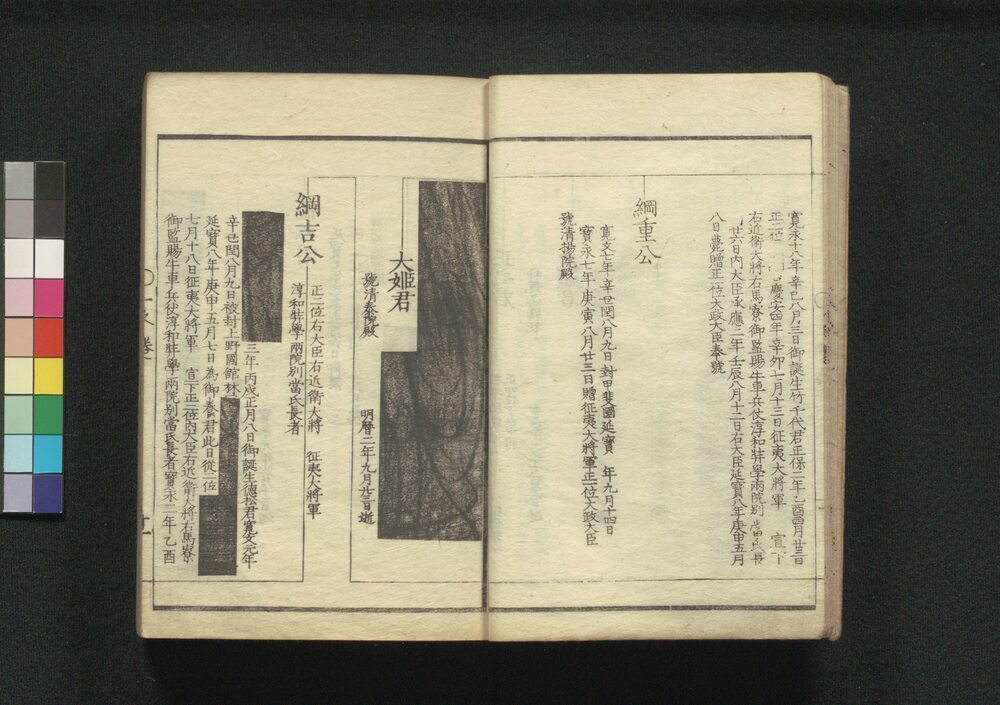 寛永十八年辛巳八月三日御誕生竹千代君正保二年乙酉四月廿三日
正二位 慶安四年辛卯七月十三日征夷大將軍 宣下
右近衛大將右馬寮御監賜牛車兵仗淳和奘學兩院别當氏長
廿六日内大臣承應二年壬辰八月十二日右大臣延寶八年庚申五月
八日薨贈正一位大政大臣奉號
綱重公
寛文七年辛丑閏八月九日封甲斐國延寶 年九月十四日
寳永七年庚寅八月廿三日贈征夷大將軍正一位大政大臣
號清揚院殿
大姫君
號清泰院殿
明曆二年九月廿三日逝
綱吉公
正二位右大臣右近衛大將 征夷大將軍
淳和奘學兩院别當氏長者
三年丙戌正月八日御誕生德松君寛文元年
辛丑閏八月九日被封上野國館林
延寶八年庚申五月七日為御養君此日從二位
七月十八日征夷大將軍 宣下正二位内大臣右近衛大將右馬寮
御監賜牛車兵仗淳和奘學兩院别當氏長者寳永二年乙酉